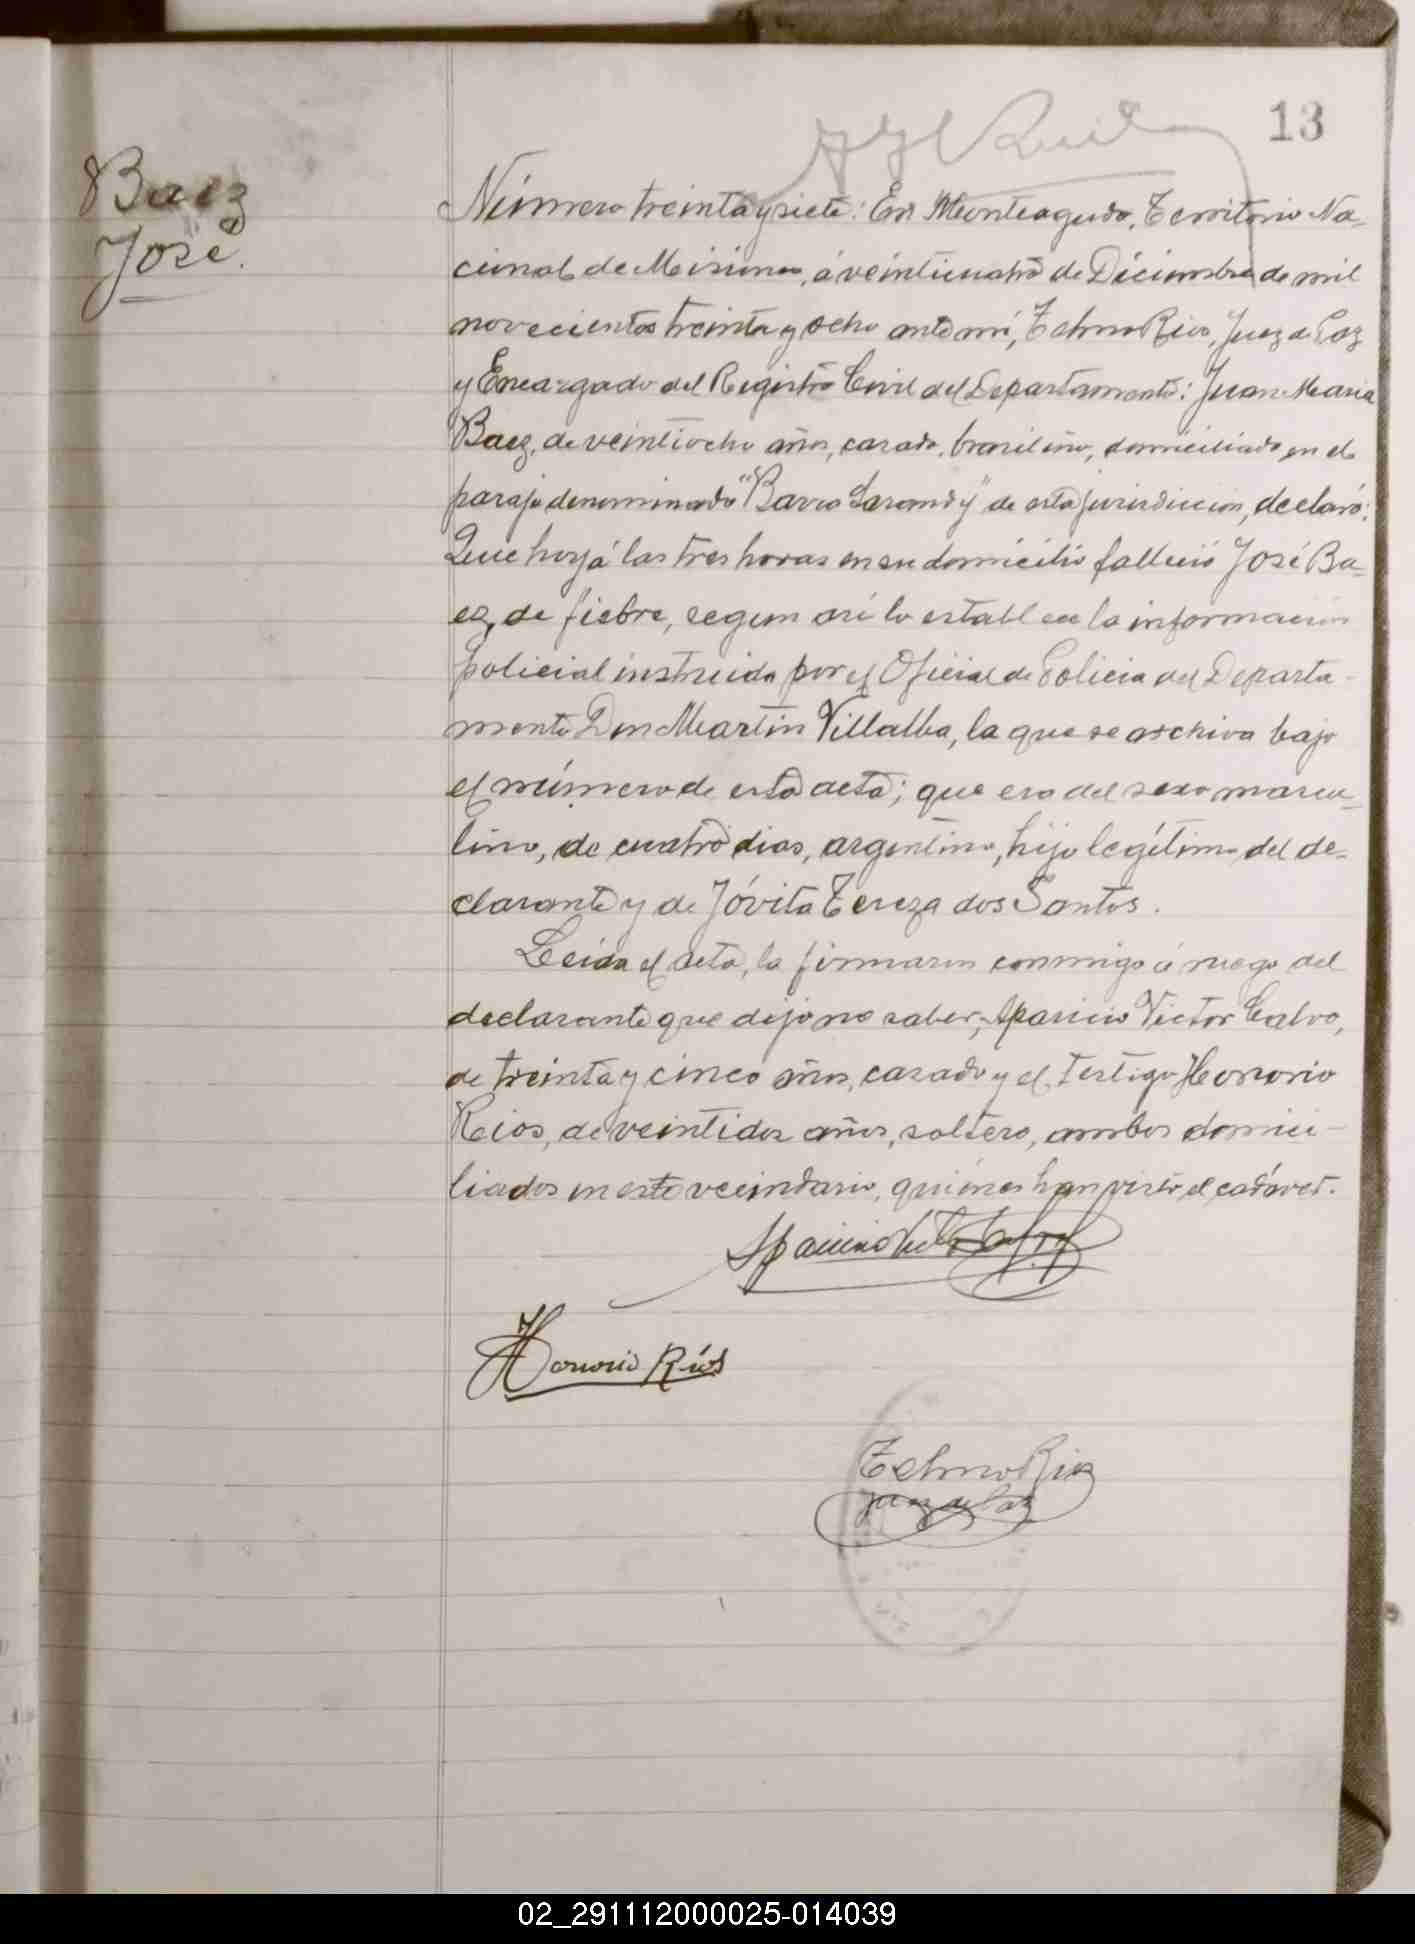 13
Baez
José.
Número treinta y siete: En Monteagudo, Territorio Na-
cional de Misiones, á veinticuatro de Diciembre de mil
novecientos treinta y ocho ante mí, Telmo Rios, Juez de Paz
y Encargado del Registro Civil del Departamento: Juan Maria
Baez, de veintiocho años, casado, brasileño, domiciliado en el
paraje denominado "Barra Sarandy" de esta jurisdiccion, declaró:
Que hoy á las tres horas en su domicilio falleció José Ba-
ez, de fiebre, segun así lo establece la informacion
policial instruida por el Oficial de Policia del Departa-
mento Don Martin Villalba, la que se archiva bajo
el número de esta acta; que era del sexo mascu-
lino, de cuatro dias, argentino, hijo legítimo del de-
clarante y de Jóvita Tereza dos Santos.
Leida el acta, la firmaron conmigo á ruego del
declarante que dijo no saber, Aparicio Victor Calvo,
de treinta y cinco años, casado y el testigo Honorio
Rios, de veintidos años, soltero, ambos domici-
liados en este vecindario, quiénes han visto el cadáver.
Aparicio Victor Calvo
Honorio Ríos
Telmo Rios
Juez de Paz
02_291112000025-014039